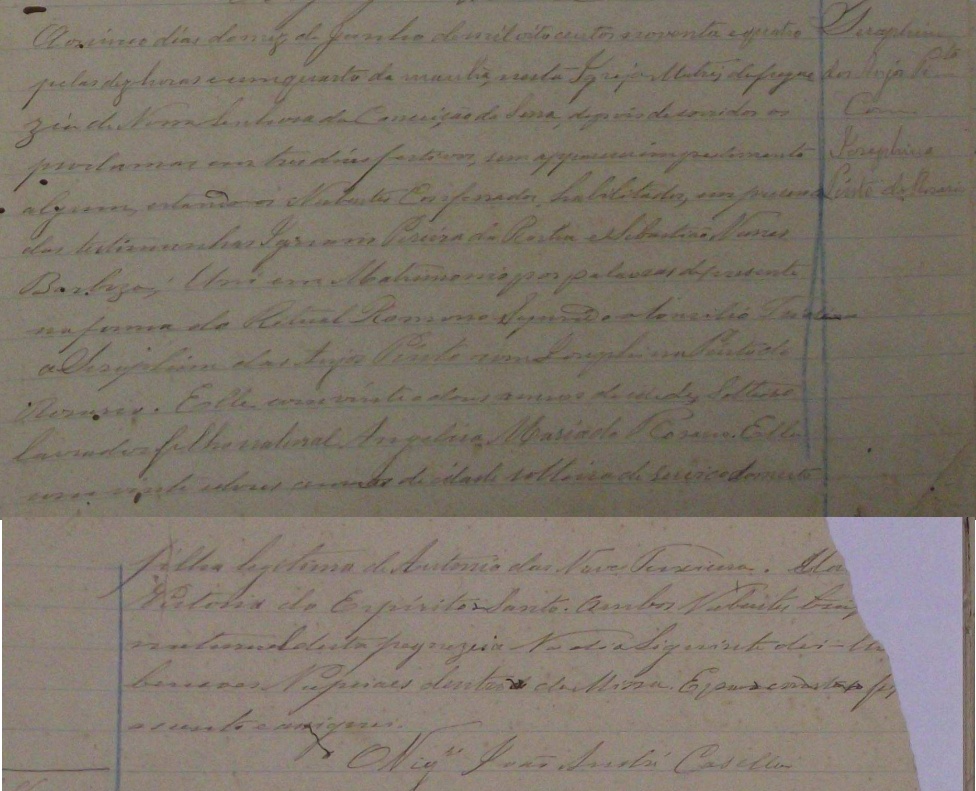 Aos cinco dias do mez de Junho de mil oito centos noventa e quatro
pelas dez horas e um quarto da manhã, nesta Igreja Matriz da fregue
zia de Nossa Senhora da Conceição da Serra, depois de corridos os
proclamas em tres dias festivos, sem apparecer impedimento
algum, estando os Nubentes Confessados, habilitados, em presença
das testimunhas Pereira da Rocha e Sebastião Nunes
Barboza, Uni em Matrimonio por palavras de presente
na forma do Ritual Romano Segundo o Concilio
a Seraphim dos Anjos Pinto com Josephina Pinto do
Rosario. Elle com vinte e dous annos de idade, Solteiro
lavrador filho natural Angelica Maria do Rosario. Ella
com vinte e dous annos de idade solteira de serviço domestico
Seraphim
dos Anjos Pinto
Com
Josephina
Pinto do Rosario
filha legitima de Antonio das Neves Teixeira.
Victoria do Espirito Santo. Ambos Nubentes
naturaes desta freguezia No dia Siguinte dei-lhes
bençaos Nupciaes dentro da Missa. E para constar fiz
o assento e assignei.
João André Casella